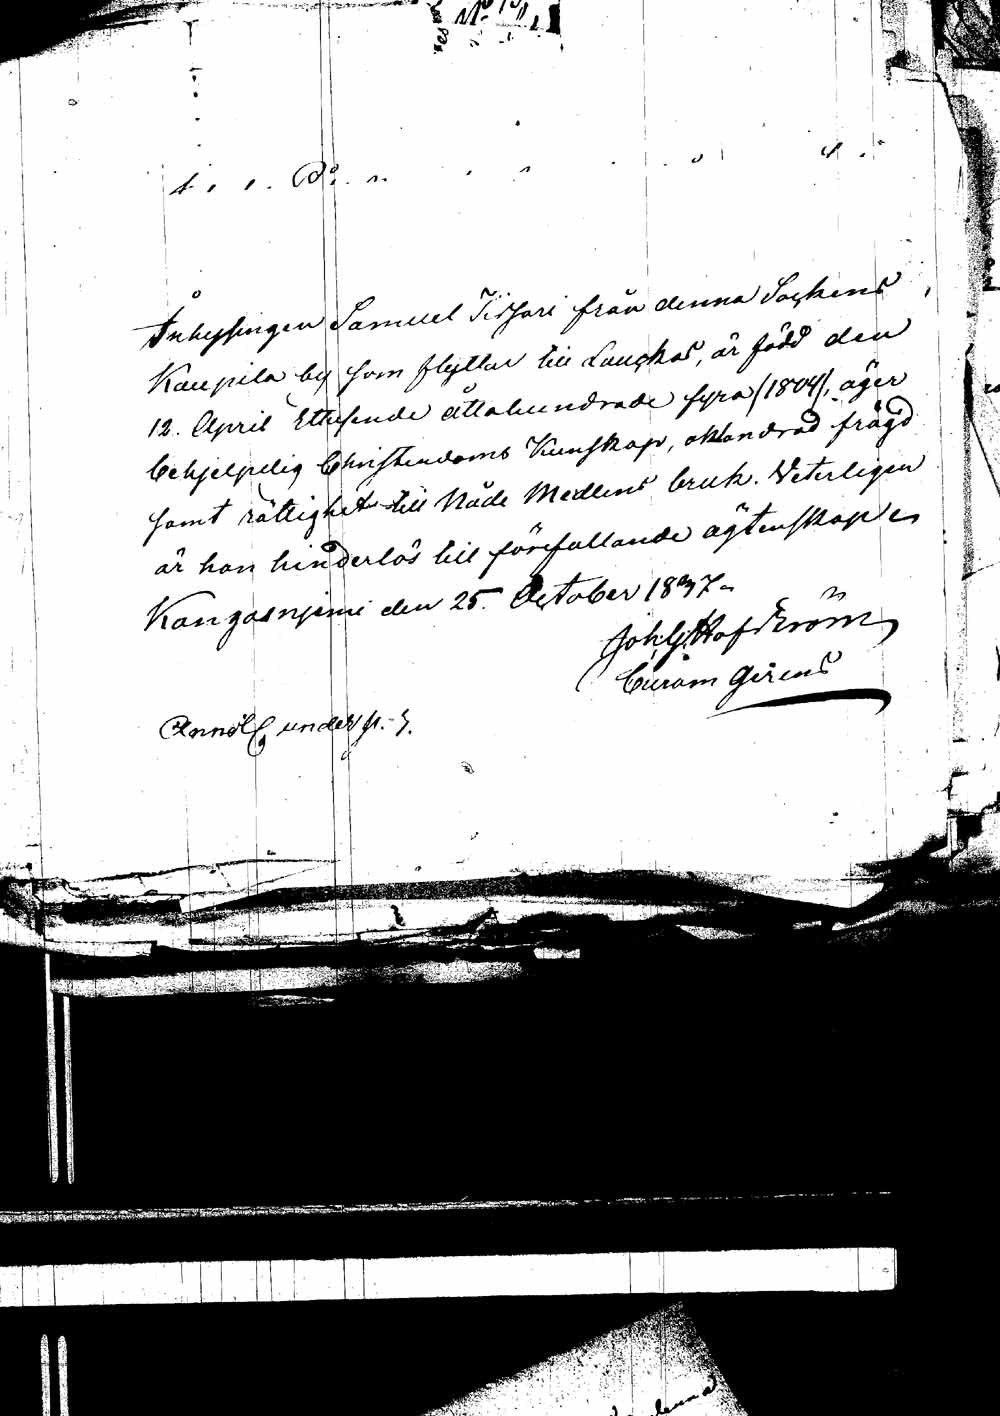 Inhysingen Samuel Tissari från denna Sockens
Kaupila by som flyttar till Laukas, är född den
12. April Ettusende åttahundrade fyra (1804), äger
behjelpelig Christendoms Kunskap, oklandrad frägd
samt rättighet till Nåde Medlens bruk. Veterligen
är han hinderlös till förefallande ägtenskap.
Kangasniemi den 25. October 1837.
Joh. G. Hofström
Curam Gerens
under p. 7.